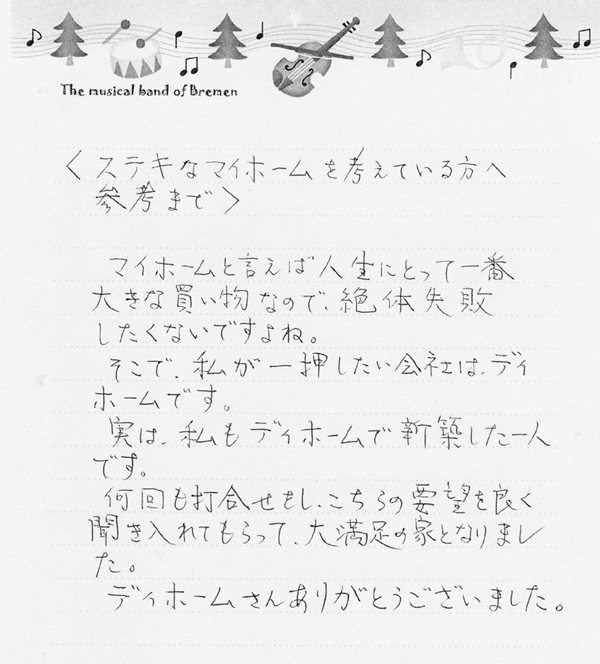 The musical band of Bremen
〈ステキなマイホームを考えている方へ
参考まで〉
マイホームと言えば人生にとって一番
大きな買い物なので、絶体失敗
したくないですよね。
そこで、私が一押したい会社は、ディ
ホームです。
実は、私もディホームで新築した一人
です。
何回も打合せをし、こちらの要望を良く
聞き入れてもらって、大満足の家となりまし
た。
ディホームさんありがとうございました。